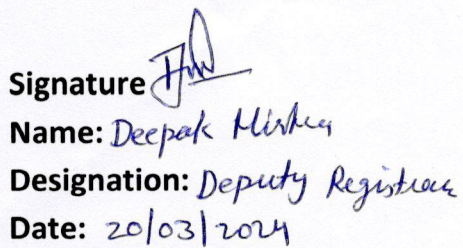 Signature
Name: Deepak Mishra
Designation: Deputy Registrar
Date: 20/03/2024